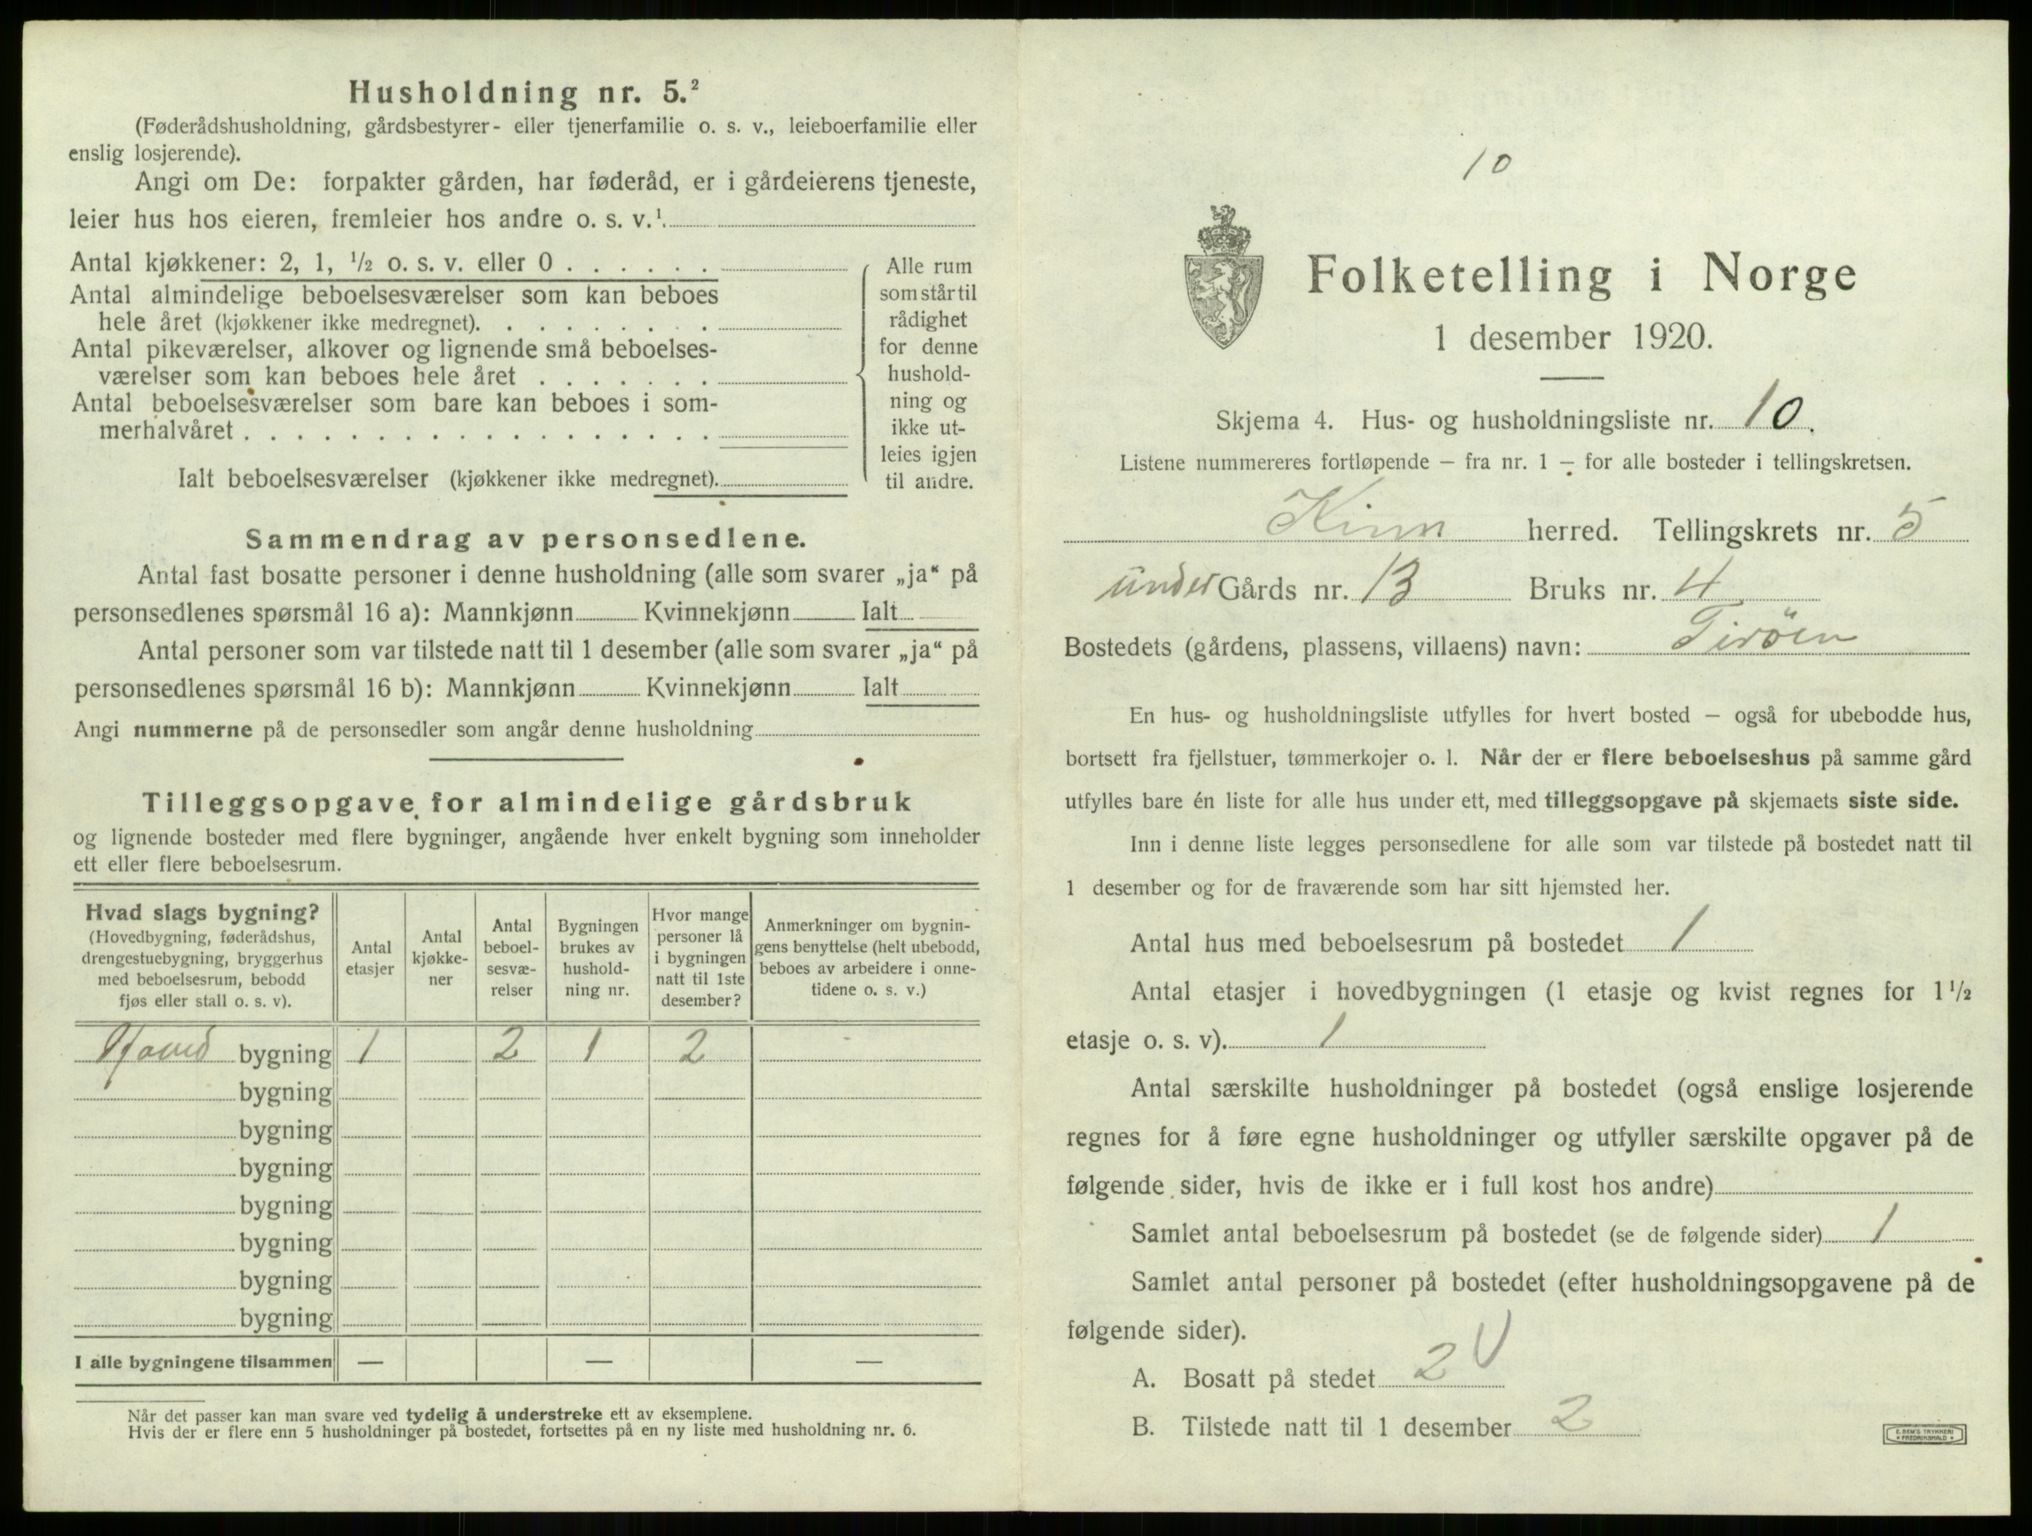 Husholdning nr. 5.²
(Føderådshusholdning, gårdsbestyrer- eller tjenerfamilie o. s. v., leieboerfamilie eller
enslig losjerende).
Angi om De: forpakter gården, har føderåd, er i gårdeierens tjeneste,
leier hus hos eieren, fremleier hos andre o. s. v.¹.
Antal kjøkkener: 2, 1, ½ o. s. v. eller 0 . . . . . .
Antal almindelige beboelsesværelser som kan beboes
hele året (kjøkkener ikke medregnet). . . . . . . . .
Antal pikeværelser, alkover og lignende små beboelses-
værelser som kan beboes hele året . . . . . . .
Antal beboelsesværelser som bare kan beboes i som-
merhalvåret . . . . . . . . . . . . . . . . . .
Ialt beboelsesværelser (kjøkkener ikke medregnet).
Alle rum
som står til
rådighet
for denne
hushold-
ning og
ikke ut-
leies igjen
til andre.
Sammendrag av personsedlene.
Antal fast bosatte personer i denne husholdning (alle som svarer „ja“ på
personsedlenes spørsmål 16 a): Mannkjønn Kvinnekjønn Ialt
Antal personer som var tilstede natt til 1 desember (alle som svarer „ja“ på
personsedlenes spørsmål 16 b): Mannkjønn Kvinnekjønn Ialt
Angi nummerne på de personsedler som angår denne husholdning
Tilleggsopgave for almindelige gårdsbruk
og lignende bosteder med flere bygninger, angående hver enkelt bygning som inneholder
ett eller flere beboelsesrum.
Hvad slags bygning?
(Hovedbygning, føderådshus,
drengestuebygning, bryggerhus
med beboelsesrum, bebodd
fjøs eller stall o. s. v).
Antal
etasjer
Antal
kjøkke-
ner
Antal
beboel-
sesvæ-
relser
Bygningen
brukes av
hushold-
ning nr.
Hvor mange
personer lå
i bygningen
natt til 1ste
desember?
Anmerkninger om bygnin-
gens benyttelse (helt ubebodd,
beboes av arbeidere i onne-
tidene o. s. v.)
Hoved bygning 1 2 1 2
bygning
bygning
bygning
bygning
bygning
bygning
bygning
I alle bygningene tilsammen — — —
Når det passer kan man svare ved tydelig å understreke ett av eksemplene.
Hvis der er flere enn 5 husholdninger på bostedet, fortsettes på en ny liste med husholdning nr. 6.
10
Folketelling i Norge
1 desember 1920.
Skjema 4. Hus- og husholdningsliste nr. 10.
Listene nummereres fortløpende — fra nr. 1 — for alle bosteder i tellingskretsen.
Kinn herred. Tellingskrets nr. 5
under Gårds nr. 13 Bruks nr. 4
Bostedets (gårdens, plassens, villaens) navn: Terøen
En hus- og husholdningsliste utfylles for hvert bosted — også for ubebodde hus,
bortsett fra fjellstuer, tømmerkojer o. l. Når der er flere beboelseshus på samme gård
utfylles bare én liste for alle hus under ett, med tilleggsopgave på skjemaets siste side.
Inn i denne liste legges personsedlene for alle som var tilstede på bostedet natt til
1 desember og for de fraværende som har sitt hjemsted her.
Antal hus med beboelsesrum på bostedet 1
Antal etasjer i hovedbygningen (1 etasje og kvist regnes for 1½
etasje o. s. v). 1
Antal særskilte husholdninger på bostedet (også enslige losjerende
regnes for å føre egne husholdninger og utfyller særskilte opgaver på de
følgende sider, hvis de ikke er i full kost hos andre)
Samlet antal beboelsesrum på bostedet (se de følgende sider) 1
Samlet antal personer på bostedet (efter husholdningsopgavene på de
følgende sider).
A. Bosatt på stedet 2 V
B. Tilstede natt til 1 desember 2
E. SEM'S TRYKKERI
FREDRIKSHALD